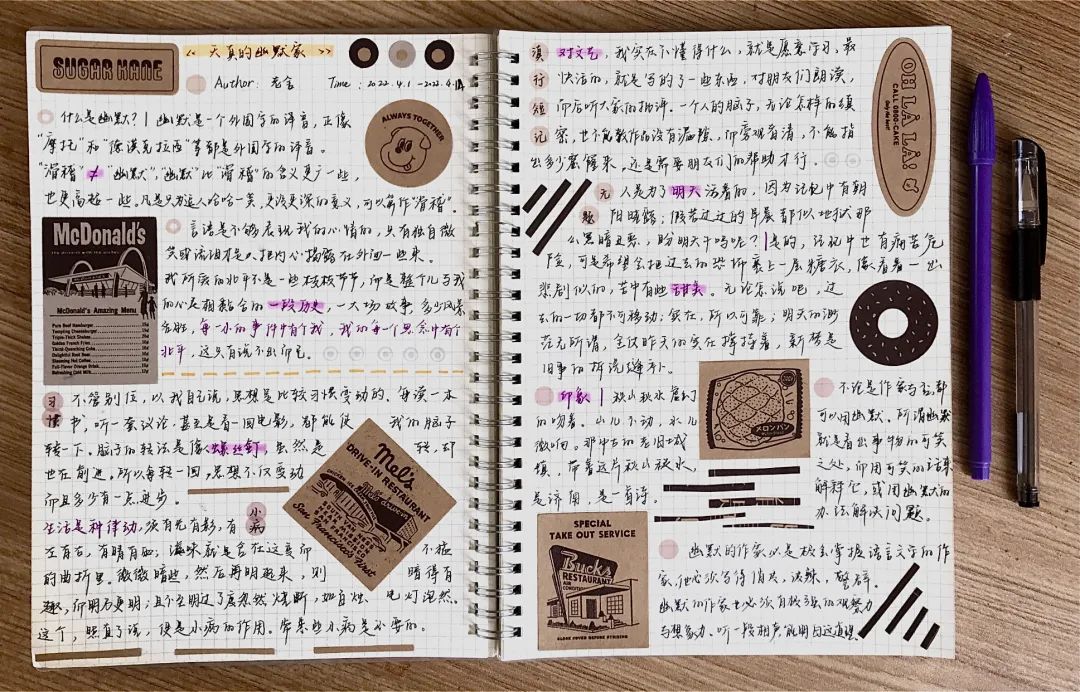 SUGAR KANE
《 天真的幽默家 》
Author: 老舍 Time: 2022.4.1 -2022.4.1
什么是幽默? 幽默是一个外国字的译音, 正像
"摩托"和"德谟克拉西"等都是外国字的译音。
"滑稽"≠"幽默","幽默"比"滑稽"的含义更广一些,
也更高超一些。凡是只为逗人哈哈一笑, 更没更深的意义, 可以算作"滑稽"。
ALWAYS TOGETHER
McDonald's
the drive-in with the arches
McDonald's Amazing Menu
Pure Beef Hamburger
Tempting Cheeseburger
Triple-Thick Shakes
Golden French Fries
Thirst-Quenching Coke
Delightful Root Beer
Steaming Hot Coffee
Full-Flavor Orange Drink
Refreshing Cold Milk
言语是不够表现我的心情的, 只有独自微
笑或流泪才足以把内心揭露在外面一些来。
我所爱的北平不是一些枝枝节节, 而是整个儿与我
的心灵相黏合的一段历史, 一大块故事, 多少风景
名胜, 每一小的事件中有个我, 我的每一个思念中有个
北平, 这只有说不出而已。
习惯
不管别位, 以我自己说, 思想是比较习惯变动的。每读一本
书, 听一套议论, 甚至看一回电影, 都能使我的脑子
转一下。脑子的转法是像螺丝钉, 虽然是转, 却
也在前进。所以每转一回, 思想不仅变动
而且多少有一点进步。
小病
生活是种律动, 须有光有影, 有
左有右, 有晴有雨; 滋味就是含在这变而不猛
的曲折里。微微暗些, 然后再明起来, 则暗得有
趣, 而明乃更明; 且至明过了度忽然烧断, 如自烛电灯泡然。
这个, 照直了说, 便是小病的作用。常来些小病是必要的。
Mel's
DRIVE-IN RESTAURANT
San Francisco's First
滇行短记
对文艺, 我实在不懂得什么, 就是愿意学习, 最
快活的, 就是写的了一些东西, 对朋友们朗读,
而后听大家的批评。一个人的脑子, 无论怎样的缜
密, 也不能教作品没有漏隙, 而旁观者清, 不能指
出多少窟窿来。还是需要朋友们的帮助才行。
OH LA LA!
CALL 0800-CAKE
Only the best!
无题
人是为了明天活着的, 因为记忆中有朝
阳晓露, 假若过去的早晨都似地狱那
么黑暗丑恶, 盼明天干吗呢? 是的, 记忆中也有痛苦危
险, 可是希望会把过去的恐怖裹上一层糖衣, 像看着一出
悲剧似的, 苦中有些甜美。无论怎说吧, 过
去的一切都不可移动; 实在, 所以可靠; 明天的渺
茫无所谓, 全仗昨天的实在撑持着, 新梦是
旧事的拆洗缝补。
印象
秋山秋水虚幻
的吻着。山儿不动, 水儿
微响。那中古的老旧城
镇, 带着这片秋山秋水,
是济南, 是一首诗。
メロンパン
SPECIAL
TAKE OUT SERVICE
Bucks
RESTAURANT
AIR CONDITIONED
CLOSE COVER BEFORE STRIKING
不论是作家与否, 都
可以用幽默。所谓幽默
就是看出事物的可笑
之处, 而用可笑的话来
解释它, 或用幽默的
办法解决问题。
幽默的作家必是极会掌握语言文学的作
家, 他必须写得俏皮, 泼辣, 警辟。
幽默的作家也必须有极强的观察力
与想象力。